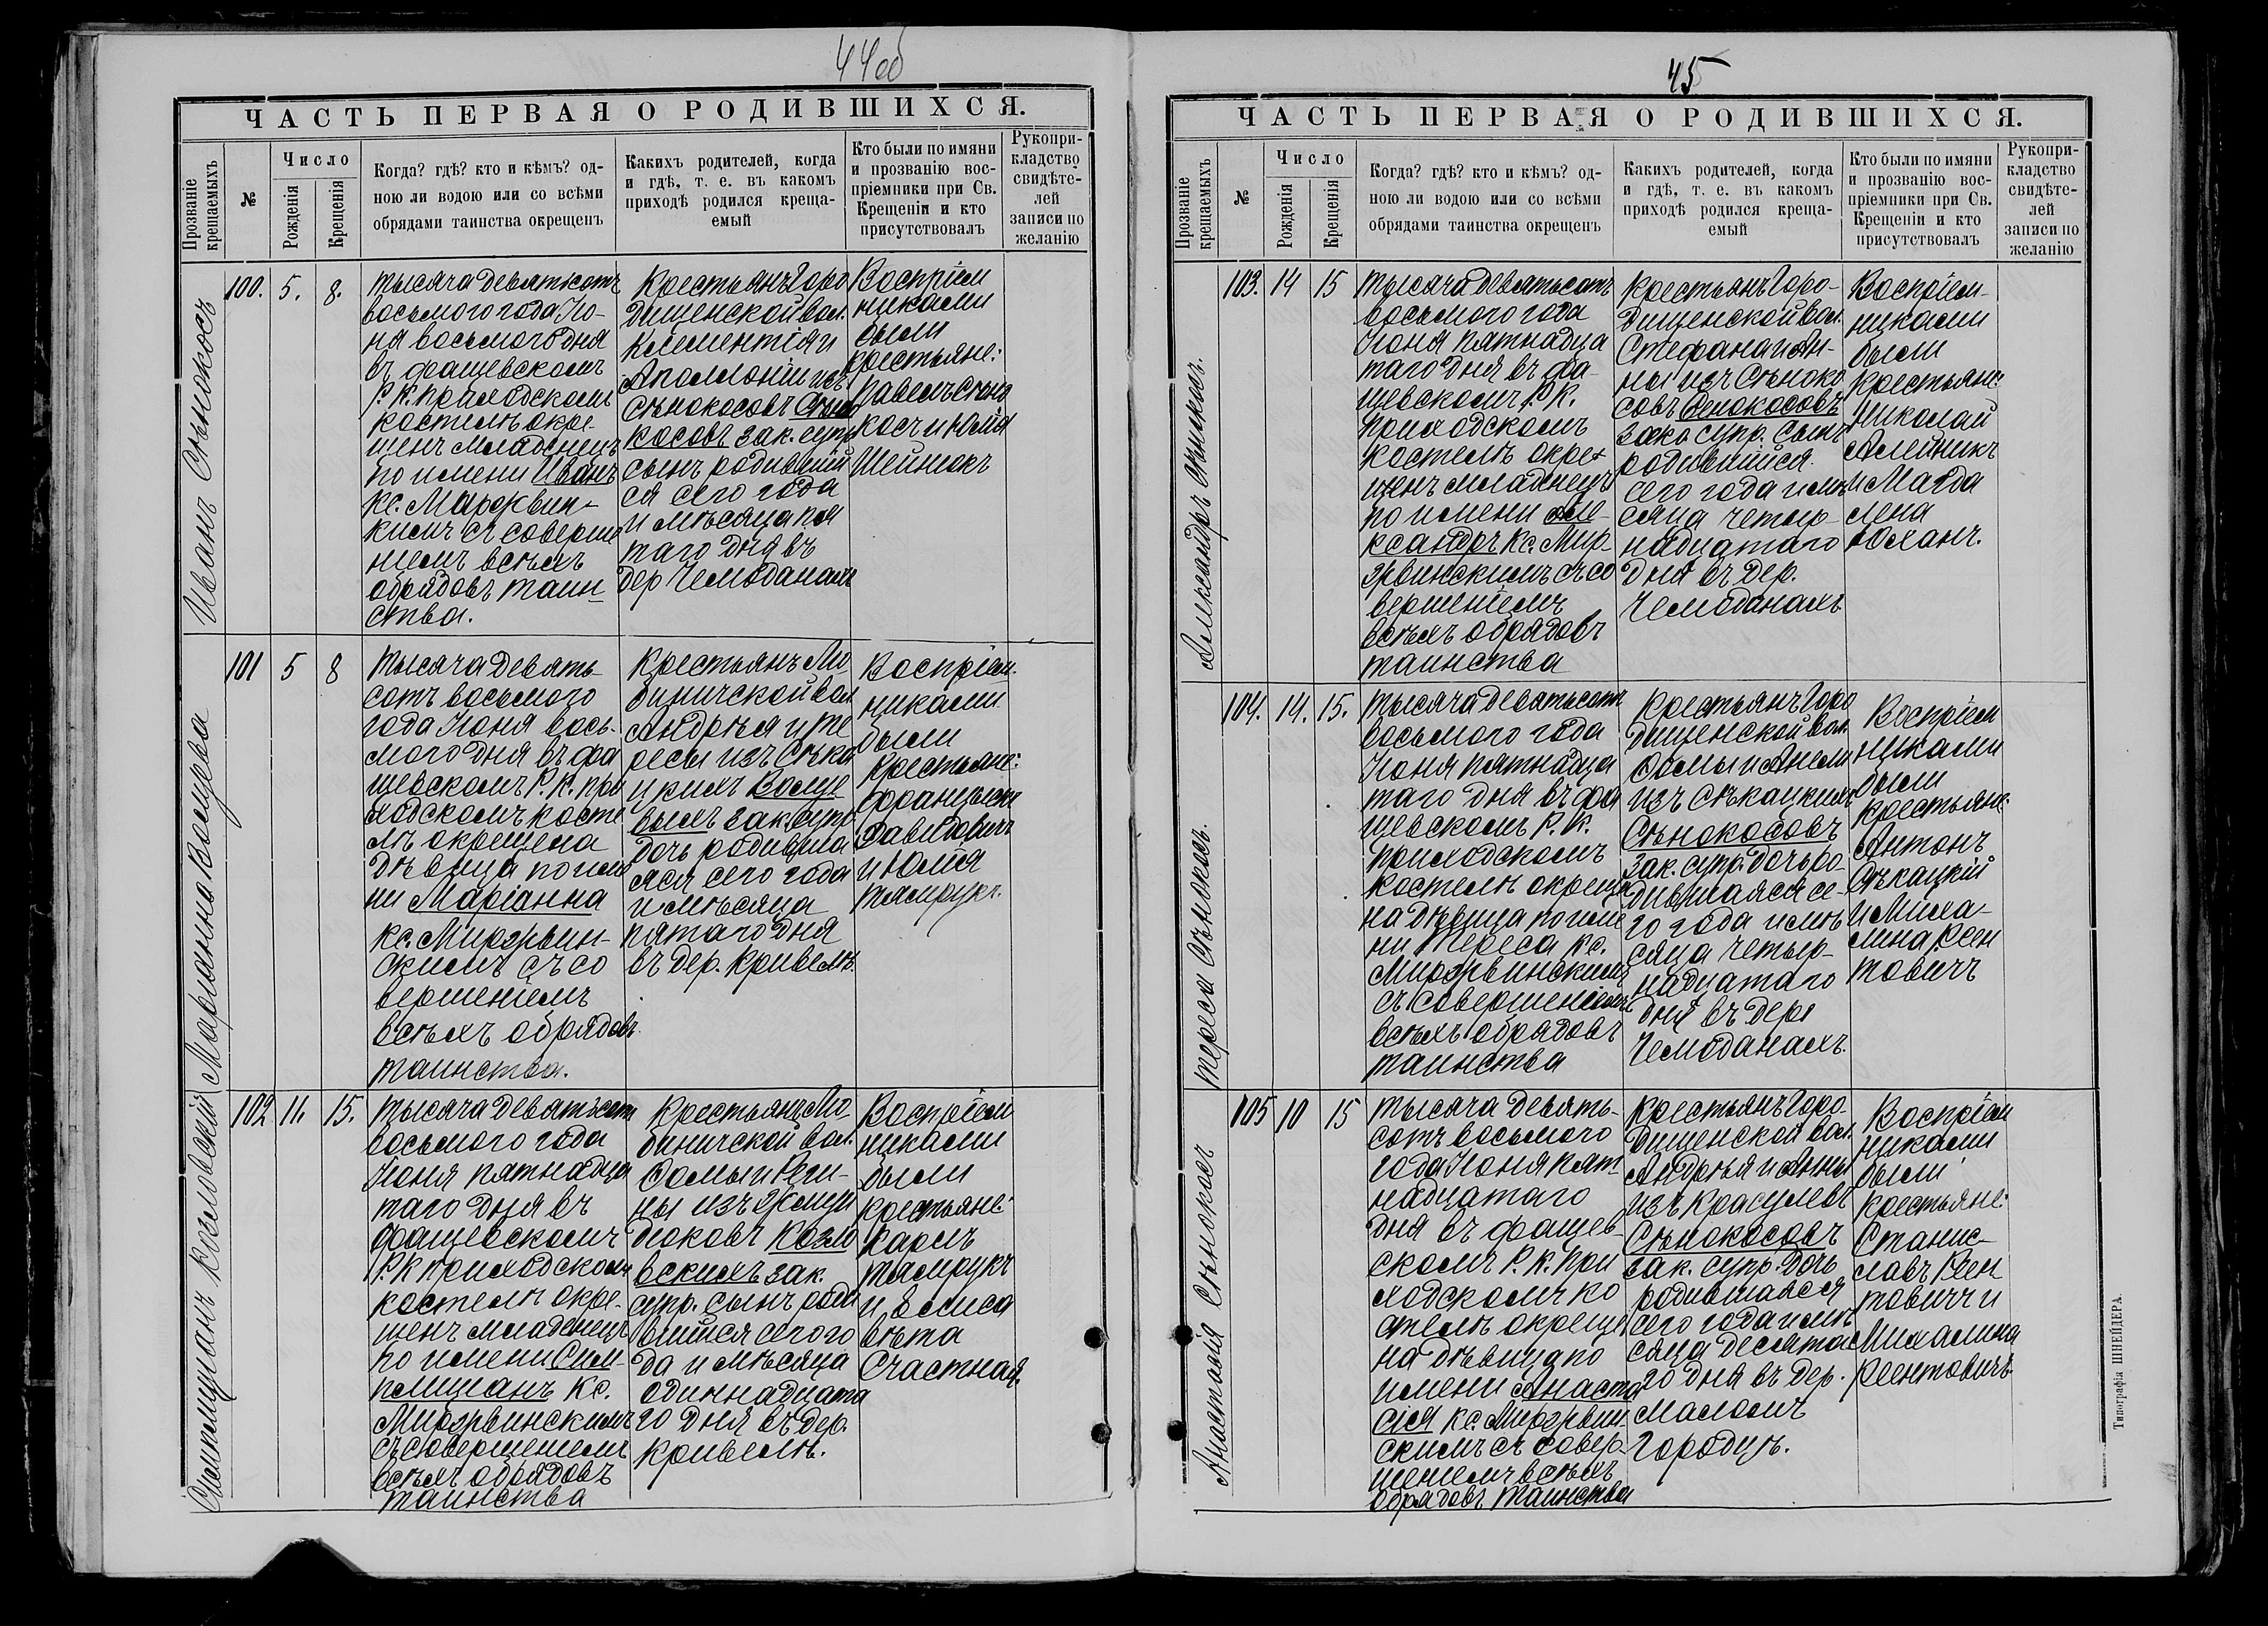 44об
ЧАСТЬ ПЕРВАЯ О РОДИВШИХСЯ.
Прозваніе крещаемыхъ
№
Число
Рожденія
Крещенія
Когда? гдѣ? кто и кѣмъ? од-
ною ли водою или со всѣми
обрядами таинства окрещенъ
Какихъ родителей, когда
и гдѣ, т. е. въ какомъ
приходѣ родился креща-
емый
Кто были по имяни
и прозванію вос-
пріемники при Св.
Крещеніи и кто
присутствовалъ
Рукопри-
кладство
свидѣте-
лей
записи по
желанію
Иванъ Сѣнокосъ
100.
5.
8.
Тысяча девятьсотъ
восьмого года Ію-
ня восьмого дня
въ фащевскомъ
Р. К. приходскомъ
костелѣ окре-
щенъ младенецъ
по имени Иванъ
кс.
съ соверше
ніемъ всѣхъ
обрядовъ таин-
ства.
Крестьянъ Горо
дищенской вол.
Климентія и
Аполлоніи изъ
Сѣнокосовъ Сѣно
косовъ зак. супр
сынъ родившій
ся сего года
и мѣсяца пя
таго дня въ
дер Чемоданахъ
Воспріем
никами
были
крестьяне:
Павелъ Сѣно
косъ и Юлія
Шейнюкъ
Маріанна Волцева
101
5
8
Тысяча девять-
сотъ восьмого
года Іюня вось-
мого дня въ фа
щевскомъ Р. К. при
ходскомъ косте
лѣ окрещена
дѣвица по име
ни Маріанна
кс. Мирзвин-
скимъ съ со
вершеніемъ
всѣхъ обрядовъ
таинства.
Крестьянъ
вол
Андрея и Те
ресы изъ Сѣка
цкихъ
зак. супр
дочь родивша
яся сего года
и мѣсяца
пятаго дня
въ дер. Кривелѣ.
Воспріем.
никами
были
крестьяне:
Францискъ
Давидовичъ
и Юлія
Тамрукъ.
Симплиціанъ Козловскій
102
11.
15.
Тысяча девятьсотъ
восьмого года
Іюня пятнадца
таго дня въ
фащевскомъ
Р. К приходскомъ
костелѣ окре-
щенъ младенецъ
по имени Сим-
плиціанъ кс.
Мирзвинскимъ
съ совершеніемъ
всѣхъ обрядовъ
таинства
Крестьянъ
вол.
Ѳомы и Реги-
ны изъ
Козло
вскихъ зак.
супр. сынъ роди
вшійся сего го
да и мѣсяца
одиннадцата
го дня въ дер.
Кривелѣ.
Воспріем
никами
были
крестьяне:
Карлъ
Тамрукъ
и Елиса
вѣта
Счастная.
45
ЧАСТЬ ПЕРВАЯ О РОДИВШИХСЯ.
Прозваніе крещаемыхъ
№
Число
Рожденія
Крещенія
Когда? гдѣ? кто и кѣмъ? од-
ною ли водою или со всѣми
обрядами таинства окрещенъ
Какихъ родителей, когда
и гдѣ, т. е. въ какомъ
приходѣ родился креща-
емый
Кто были по имяни
и прозванію вос-
пріемники при Св.
Крещеніи и кто
присутствовалъ
Рукопри-
кладство
свидѣте-
лей
записи по
желанію
Александръ Сѣнокосъ.
103.
14
15
Тысяча девятьсотъ
восьмого года
Іюня пятнадца
таго дня въ фа-
щевскомъ Р К.
приходскомъ
костелѣ окре
щенъ младенецъ
по имени Але-
ксандръ кс. Мир-
звинскимъ съ со
вершеніемъ
всѣхъ обрядовъ
таинства
Крестьянъ Горо-
дищенской вол.
Стефана и Ан-
ны изъ Сѣноко
совъ Сѣнокосовъ
зако супр. сынъ
родившійся
сего года и мѣ
сяца четыр-
надцатаго
дня въ дер.
Чемоданахъ
Воспріем-
никами
были
крестьяне:
Николай
Алейникъ
и Магда
лена
Юханъ.
Тереса Сѣнокосъ.
104.
14.
15.
Тысяча девятьсотъ
восьмого года
Іюня пятнадца
таго дня въ фа
щевскомъ Р. К.
приходскомъ
костелѣ окреще
на дѣвица по име
ни Тереса кс.
Мирзвинскимъ
съ совершеніемъ
всѣхъ обрядовъ
таинства
Крестьянъ Горо
дищенской вол.
Ѳомы и Анели
изъ Сѣкацкихъ
Сѣнокосовъ
зак. супр. дочь ро-
дившаяся се-
го года и мѣ
сяца четыр-
надцатаго
дня въ дер.
Чемоданахъ.
Воспріем
никами
были
крестьяне:
Антонъ
Сѣкацкій
и Миха-
лина Рен
товичъ
Анастасія Сѣнокосъ
105
10
15
Тысяча девять-
сотъ восьмого
года Іюня пят-
надцатаго
дня въ фащев-
скомъ Р. К. при
ходскомъ ко
стелѣ окреще
на дѣвица по
имени Анаста
сія кс. Мирзвин
скимъ съ совер
шеніемъ всѣхъ
обрядовъ таинства
Крестьянъ Горо-
дищенской вол.
Андрея и Анны
изъ Красулевъ
Сѣнокосовъ
зак. супр. дочь
родившаяся
сего года и мѣ
сяца десята
го дня въ дер.
Маломъ
Городцѣ.
Воспріем
никами
были
крестьяне:
Станис-
лавъ Рен
товичъ и
Михалина
Рентовичъ
Типографія ШНЕЙДЕРА.